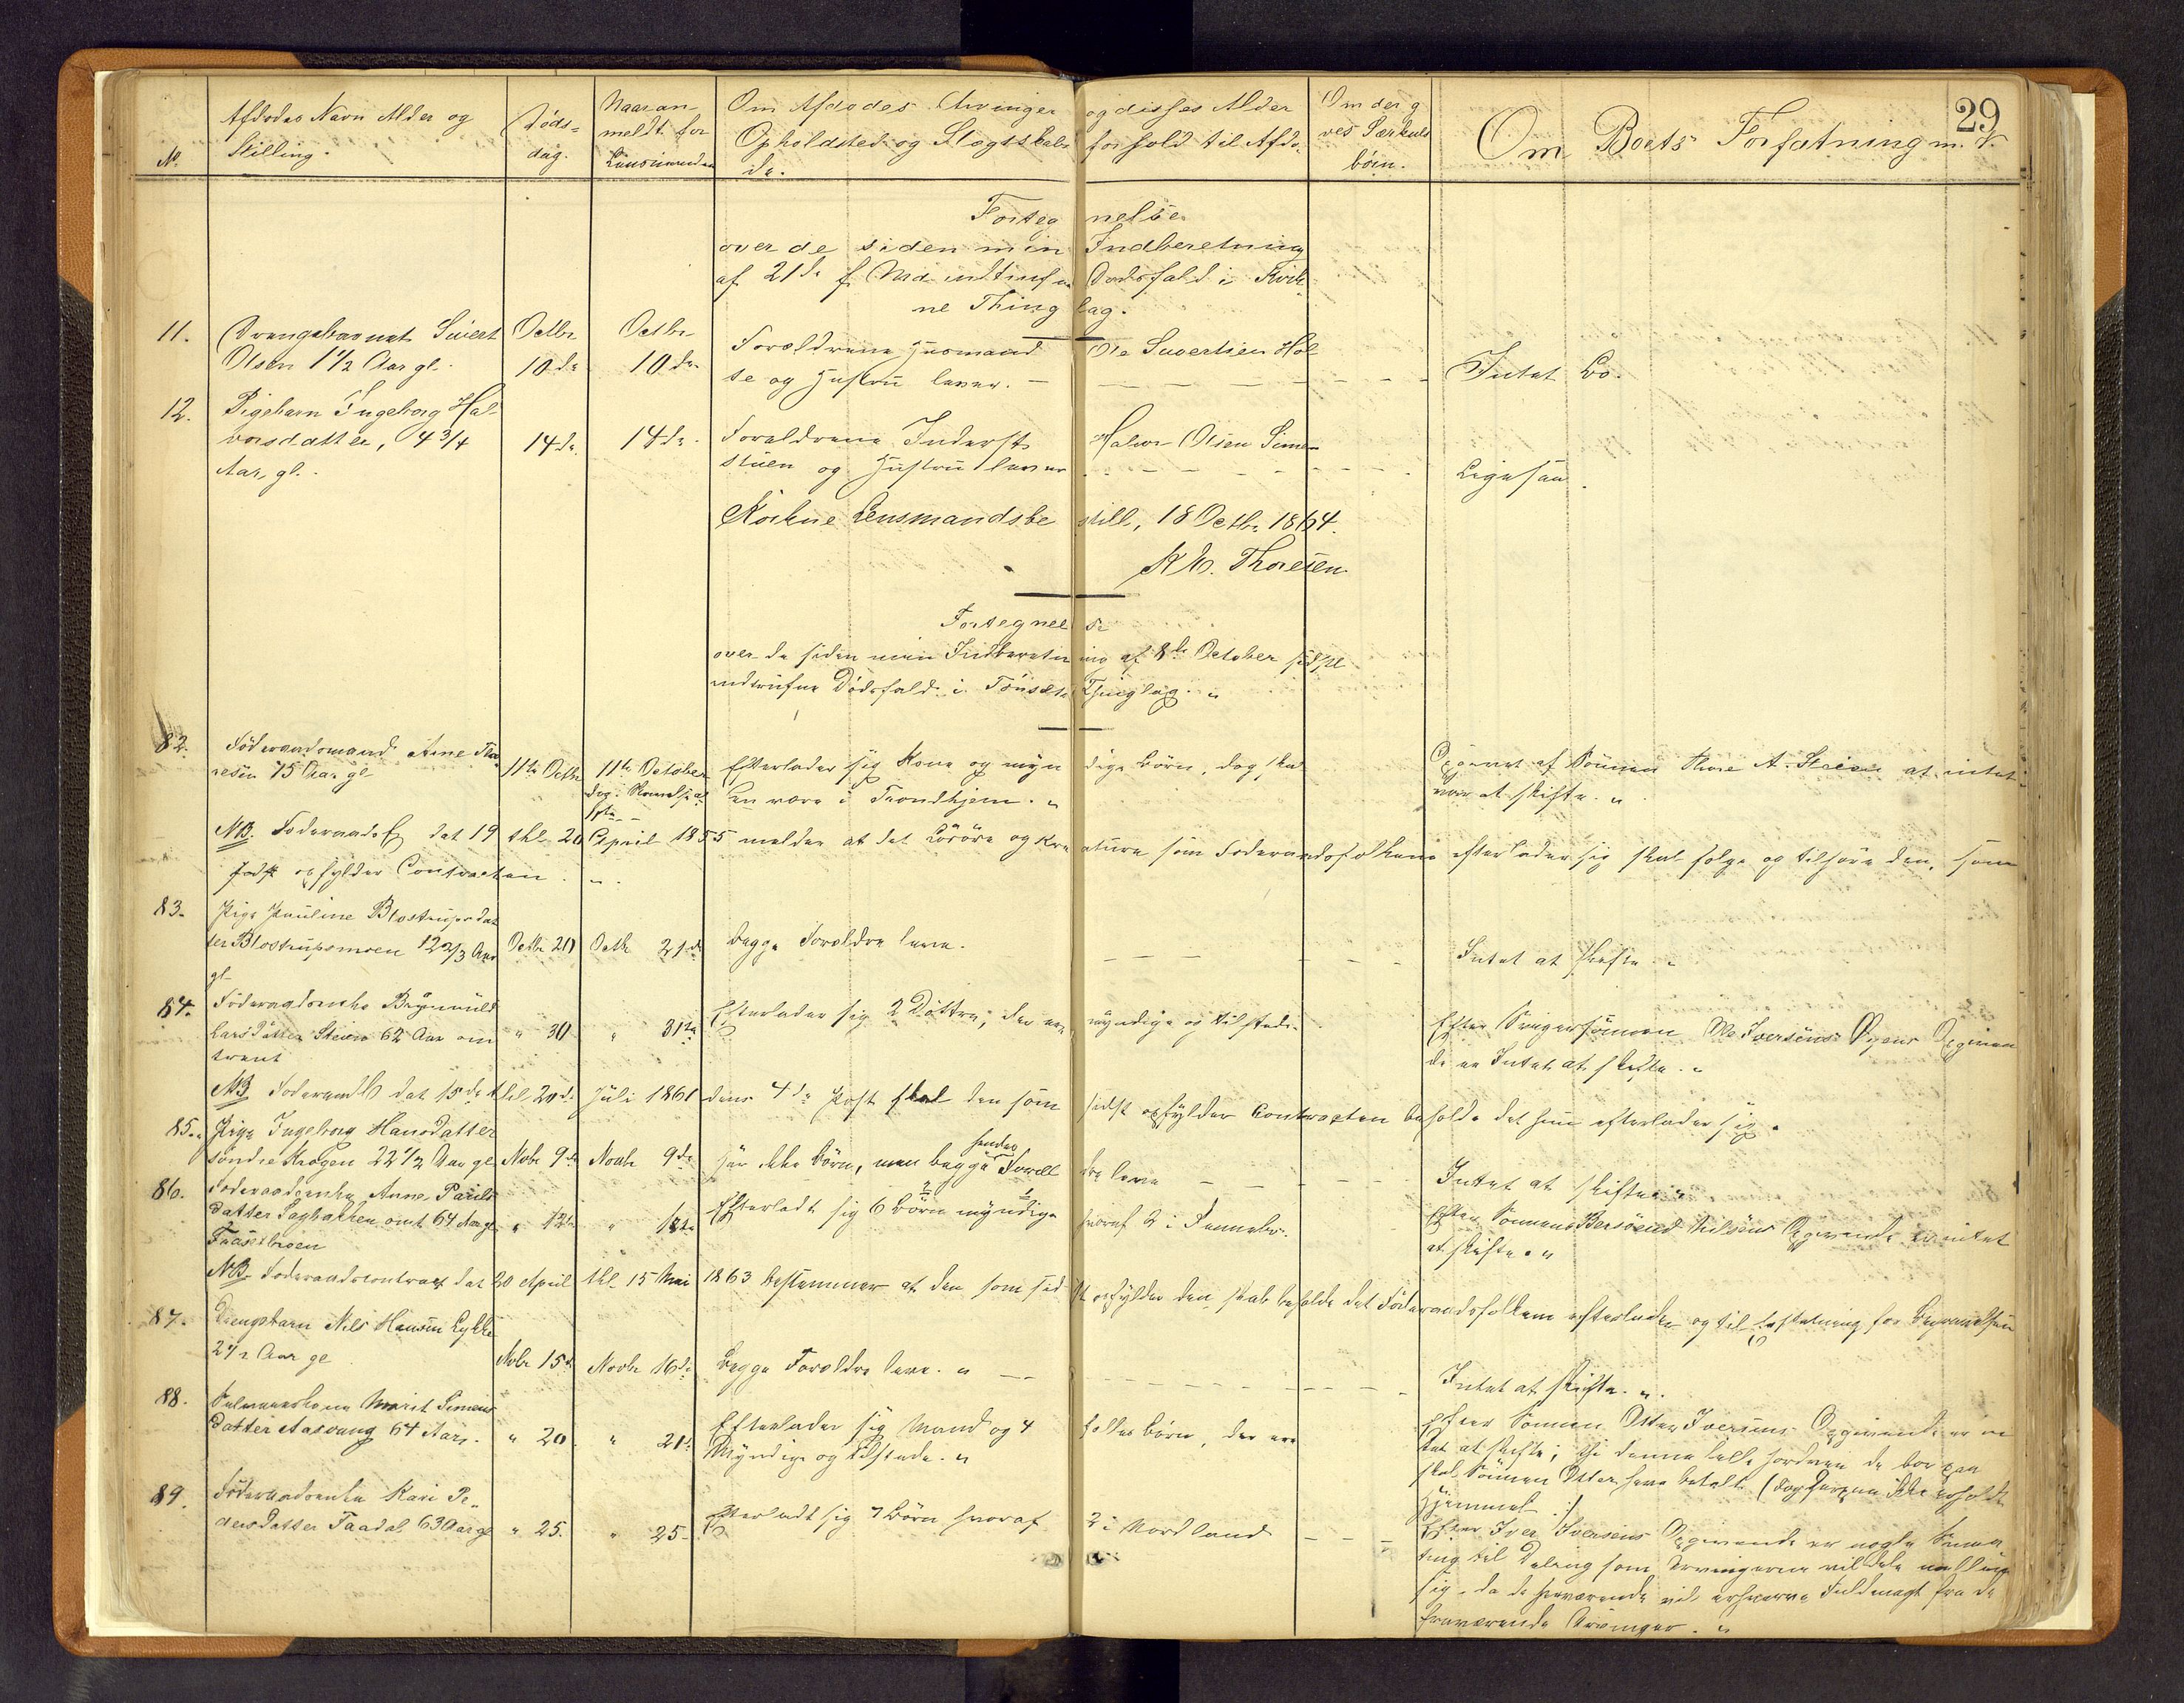 29
No.
Afdødes Navn Alder og
Stilling.
Døds-
dag.
Naar an-
meldt for
Lensmanden
Om Afdødes Arvinger og disses Alder
Opholdsted og Slægtskabs forhold til Afdø-
de.
Om der g
ves Særkuls
børn.
Om Boets Forfatning m. V.
Forteg nelse
over de siden min Indberetning
af 21de f. Md. indtrufne Dødsfald i Kvik-
ne Thing lag.
11. Drengebarnet Sivert Octbr Octbr Forældrene Husmand Ole Sivertsen Hol-
Olsen 1 1/2 Aar gl. 10de 10de te og Hustru lever. Intet Bo.
12. Pigebarn Ingeborg Hal-
vorsdatter, 4 3/4 14de 14de Forældrene Inderst Halvor Olsen Simen-
Aar, gl. stuen og Hustru lever Ligesaa.
Kvikne Lensmandsbe still, 18 Octbr 1864.
Thoresen
Fortegnel se
over de siden min Indberetn ing af 8de October sidstl
indtrufne Dødsfald i Tønsets Thinglag.
82. Föderaadsmand Arne Tho-
resen 75 Aar gl 11te Octbr 11te October Efterlader sig Kone og myn dige Børn, dog skal
en være i Trondhjem. Opgivet af Sønnen Thore A. at intet
var at skifte.
NB. Foderaads dat 19 thl. 20 April 1855 melder at det Løsøre og Kre aturer som Foderaadsfolkene efterlader sig skal følge og tilhøre den, som
sidst opfylder Contracten.
83. Pige Pauline Blostrupsdat-
ter Blostrupsmoen 12 2/3 Aar Octbr 20 Octbr 21de begge Forældre leve. Intet at skifte.
gl
84. Föderaadsenke Brynnild
Larsdatter Steien 62 Aar om " 30 " 31te Efterlader sig 2 Døttre, der ere myndige og tilstede. Efter Svigersønnen Ole Iversens Øyens Opgivende
trent de er Intet at skifte.
NB. Foderaads dat 15de thl 20de Juli 1861 dens 4de Post skal den som sidst opfylder Contracten beholde det hun efterlader sig.
85. Pige Ingeborg Hansdatter
søndre Krogen 22 1/2 Aar gl Novbr 9de Novbr 9de Har ikke Børn, men begge hendes Foræl dre leve Intet at skifte.
86. Foderaadsenke Anne Pauls-
datter Sagbakken omt 64 Aar gl. " 12te " 18de Efterladt sig 6 Børn myndige hvoraf 2 i Efter Sønnen Nilsens Opgivende er intet
at skifte.
NB. Foderaadscontract dat 20 April thl. 15 Mai 1863 bestemmer at den som sid st opfylder den, skal beholde det Föderaadsfolkene efterlader og til Erstatning for Begravelsen
87. Drengebarn Nils Hansen Lykke
2 1/2 Aar gl Novbr 15de Novbr 16de Begge Forældre leve. Intet at skifte.
88. Selveierkone Marit Simens-
datter Aasvang 64 Aar. " 20 " 21de Efterlader sig Mand og 4 fælles Børn, der ere
Myndige og tilstede. Efter Sønnen Otter Iversens Opgivende er in-
tet at skifte; thi denne de bor paa
skal Sønnen Otter have betalt
Hjemmel.
89. Föderaadsenke Kari Pe-
dersdatter Taadal 63 Aar gl " 25. " 25- Efterladt sig 7 Børn hvoraf 2 i Nordland
Efter Iver Iversens Opgivende er nogle Smaa-
ting til Deling som Arvingerne vil dele mellem
sig, da de nærværende vil erhverve Fuldmagt fra de
fraværende Arvinger.